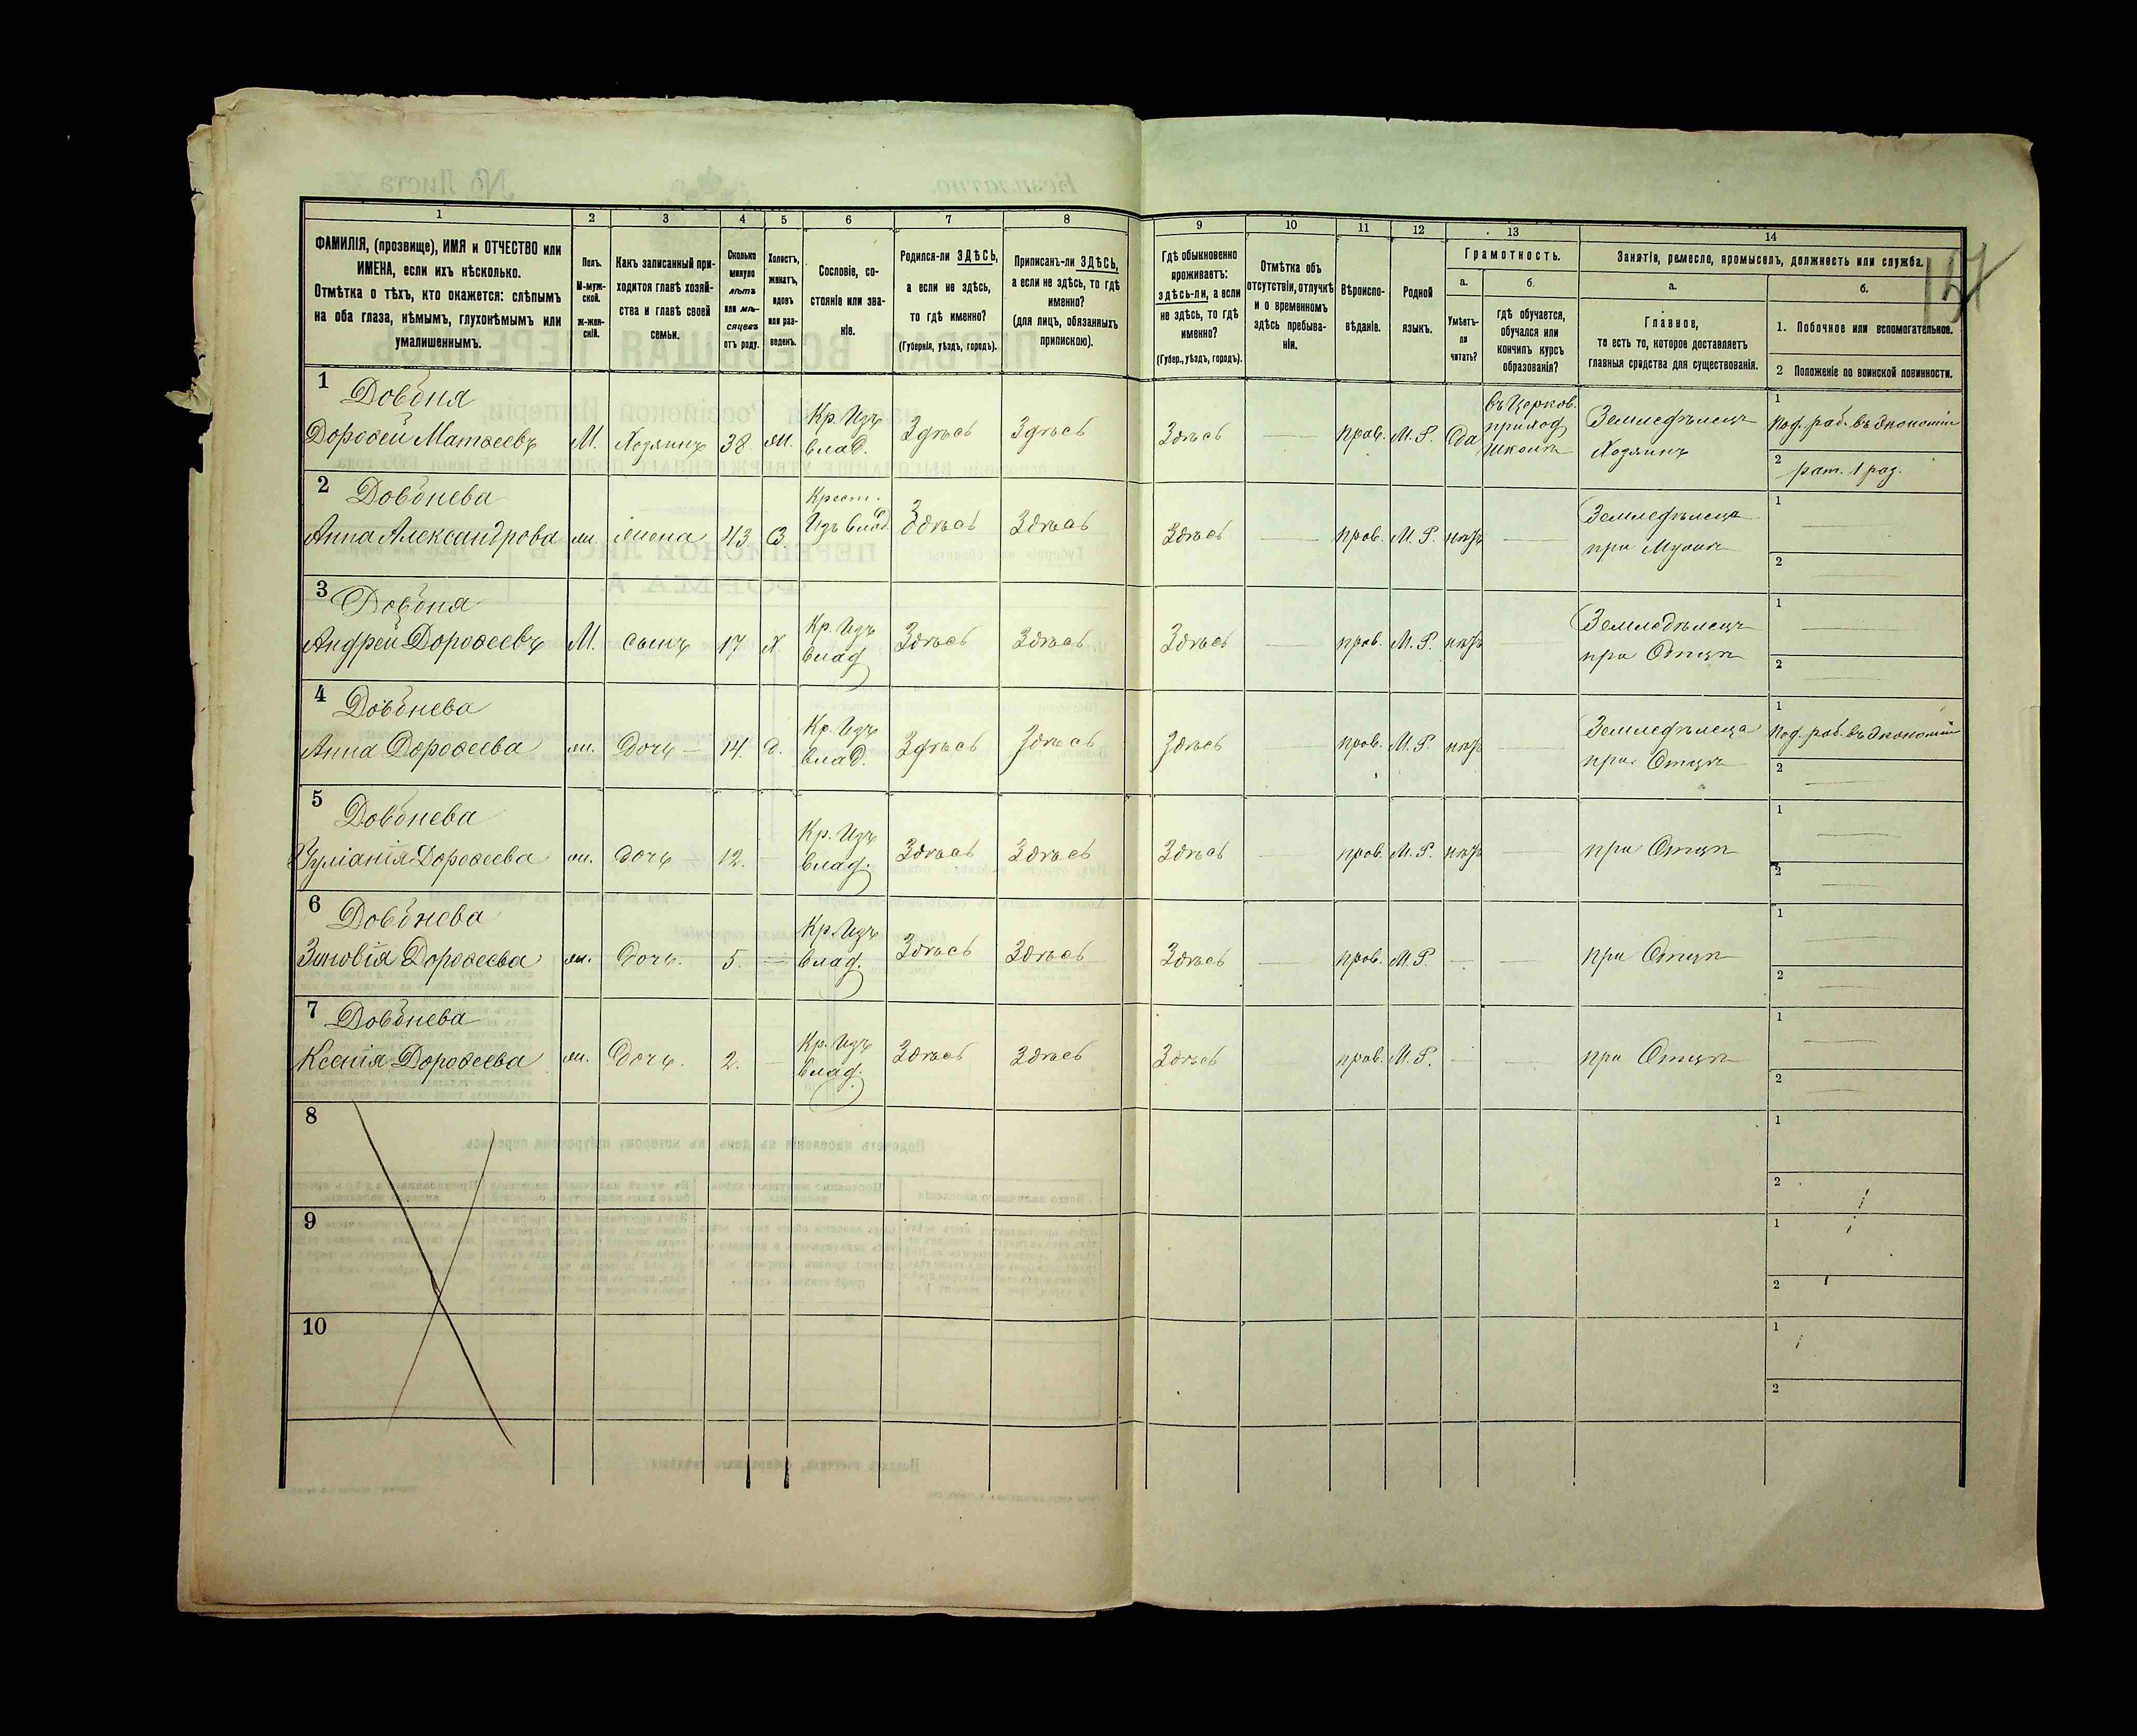 157
1
2
3
4
5
6
7
8
9
10
11
12
13
14
ФАМИЛІЯ, (прозвище), ИМЯ и ОТЧЕСТВО или
ИМЕНА, если ихъ нѣсколько.
Отмѣтка о тѣхъ, кто окажется: слѣпымъ
на оба глаза, нѣмымъ, глухонѣмымъ или
умалишеннымъ.
Полъ.
М-муж-
ской.
ж-жен-
скій.
Какъ записанный при-
ходится главѣ хозяй-
ства и главѣ своей
семьи.
Сколько
минуло
лѣтъ
или мѣ-
сяцевъ
отъ роду.
Холостъ,
женатъ,
вдовъ
или раз-
веденъ.
Сословіе, со-
стояніе или зва-
ніе.
Родился-ли ЗДѢСЬ,
а если не здѣсь,
то гдѣ именно?
(Губернія, уѣздъ, городъ).
Приписанъ-ли ЗДѢСЬ,
а если не здѣсь, то гдѣ
именно?
(для лицъ, обязанныхъ
припискою).
Гдѣ обыкновенно
проживаетъ:
здѣсь-ли, а если
не здѣсь, то гдѣ
именно?
(Губер., уѣздъ, городъ).
Отмѣтка объ
отсутствіи, отлучкѣ
и о временномъ
здѣсь пребыва-
ніи.
Вѣроиспо-
вѣданіе.
Родной
языкъ.
Грамотность.
а.
Умѣетъ-
ли
читать?
б.
гдѣ обучается,
обучался или
кончилъ курсъ
образованія?
Занятія, ремесло, промыселъ, должность или служба.
а.
Главное,
то есть то, которое доставляетъ
главныя средства для существованія.
б.
1. Побочное или вспомогательное.
2 Положеніе по воинской повинности.
1 Довбня
Дорофей Матвеевъ М. Хозяинъ 38 Ж. Кр. Изъ влад. Здѣсь Здѣсь Здѣсь — прав. М.Р. Да въ Церков. приход школѣ Земледѣлецъ Хозяинъ
1 Под. раб. въ Экономіи
2 рат. 1 раз.
2 Довбнева
Анна Александрова ж. жена 43 З Крест. Изъ влад. Здѣсь Здѣсь Здѣсь — прав. М.Р. нѣтъ — Земледѣлица при Мужѣ
1
2 —
3 Довбня
Андрей Дорофеевъ М. сынъ 17 Х. Кр. Изъ влад Здѣсь Здѣсь Здѣсь — прав. М.Р. нѣтъ — Земледѣлецъ при Отцѣ
1 —
2 —
4 Довбнева
Анна Дорофеева ж. дочь — 14. д. Кр. Изъ влад. Здѣсь Здѣсь Здѣсь — прав. М.Р. нѣтъ — Земледѣлица при Отцѣ
1 Под. раб. въ Экономіи
2 —
5 Довбнева
Уліанія Дорофеева ж. дочь — 12. — Кр. Изъ влад. Здѣсь Здѣсь Здѣсь — прав. М.Р. нѣтъ — при Отцѣ
1 —
2 —
6 Довбнева
Зиновія Дорофеева ж. дочь. 5. — Кр. Изъ влад. Здѣсь Здѣсь Здѣсь — прав. М.Р. — — при Отцѣ
1 —
2 —
7 Довбнева
Ксенія Дорофеева ж. дочь. 2. — Кр. Изъ влад. Здѣсь Здѣсь Здѣсь прав. М.Р. — — при Отцѣ
1 —
2 —
8
1
2
9
1
2
10
1
2